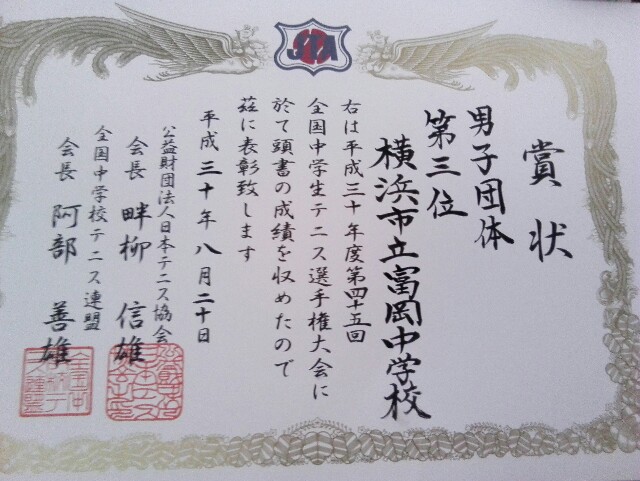 JTA
賞状
男子団体
第三位
横浜市立富岡中学校
右は平成三十年度第四十五回
全国中学生テニス選手権大会に
於て頭書の成績を収めたので
茲に表彰致します
平成三十年八月二十日
公益財団法人日本テニス協会
会長 畔柳 信雄
全国中学校テニス連盟
会長 阿部 善雄